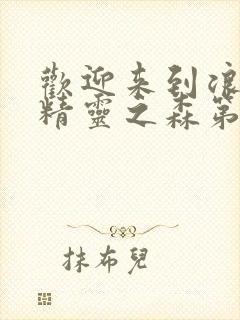 歡迎来到浪
精靈之森第
抹布兒